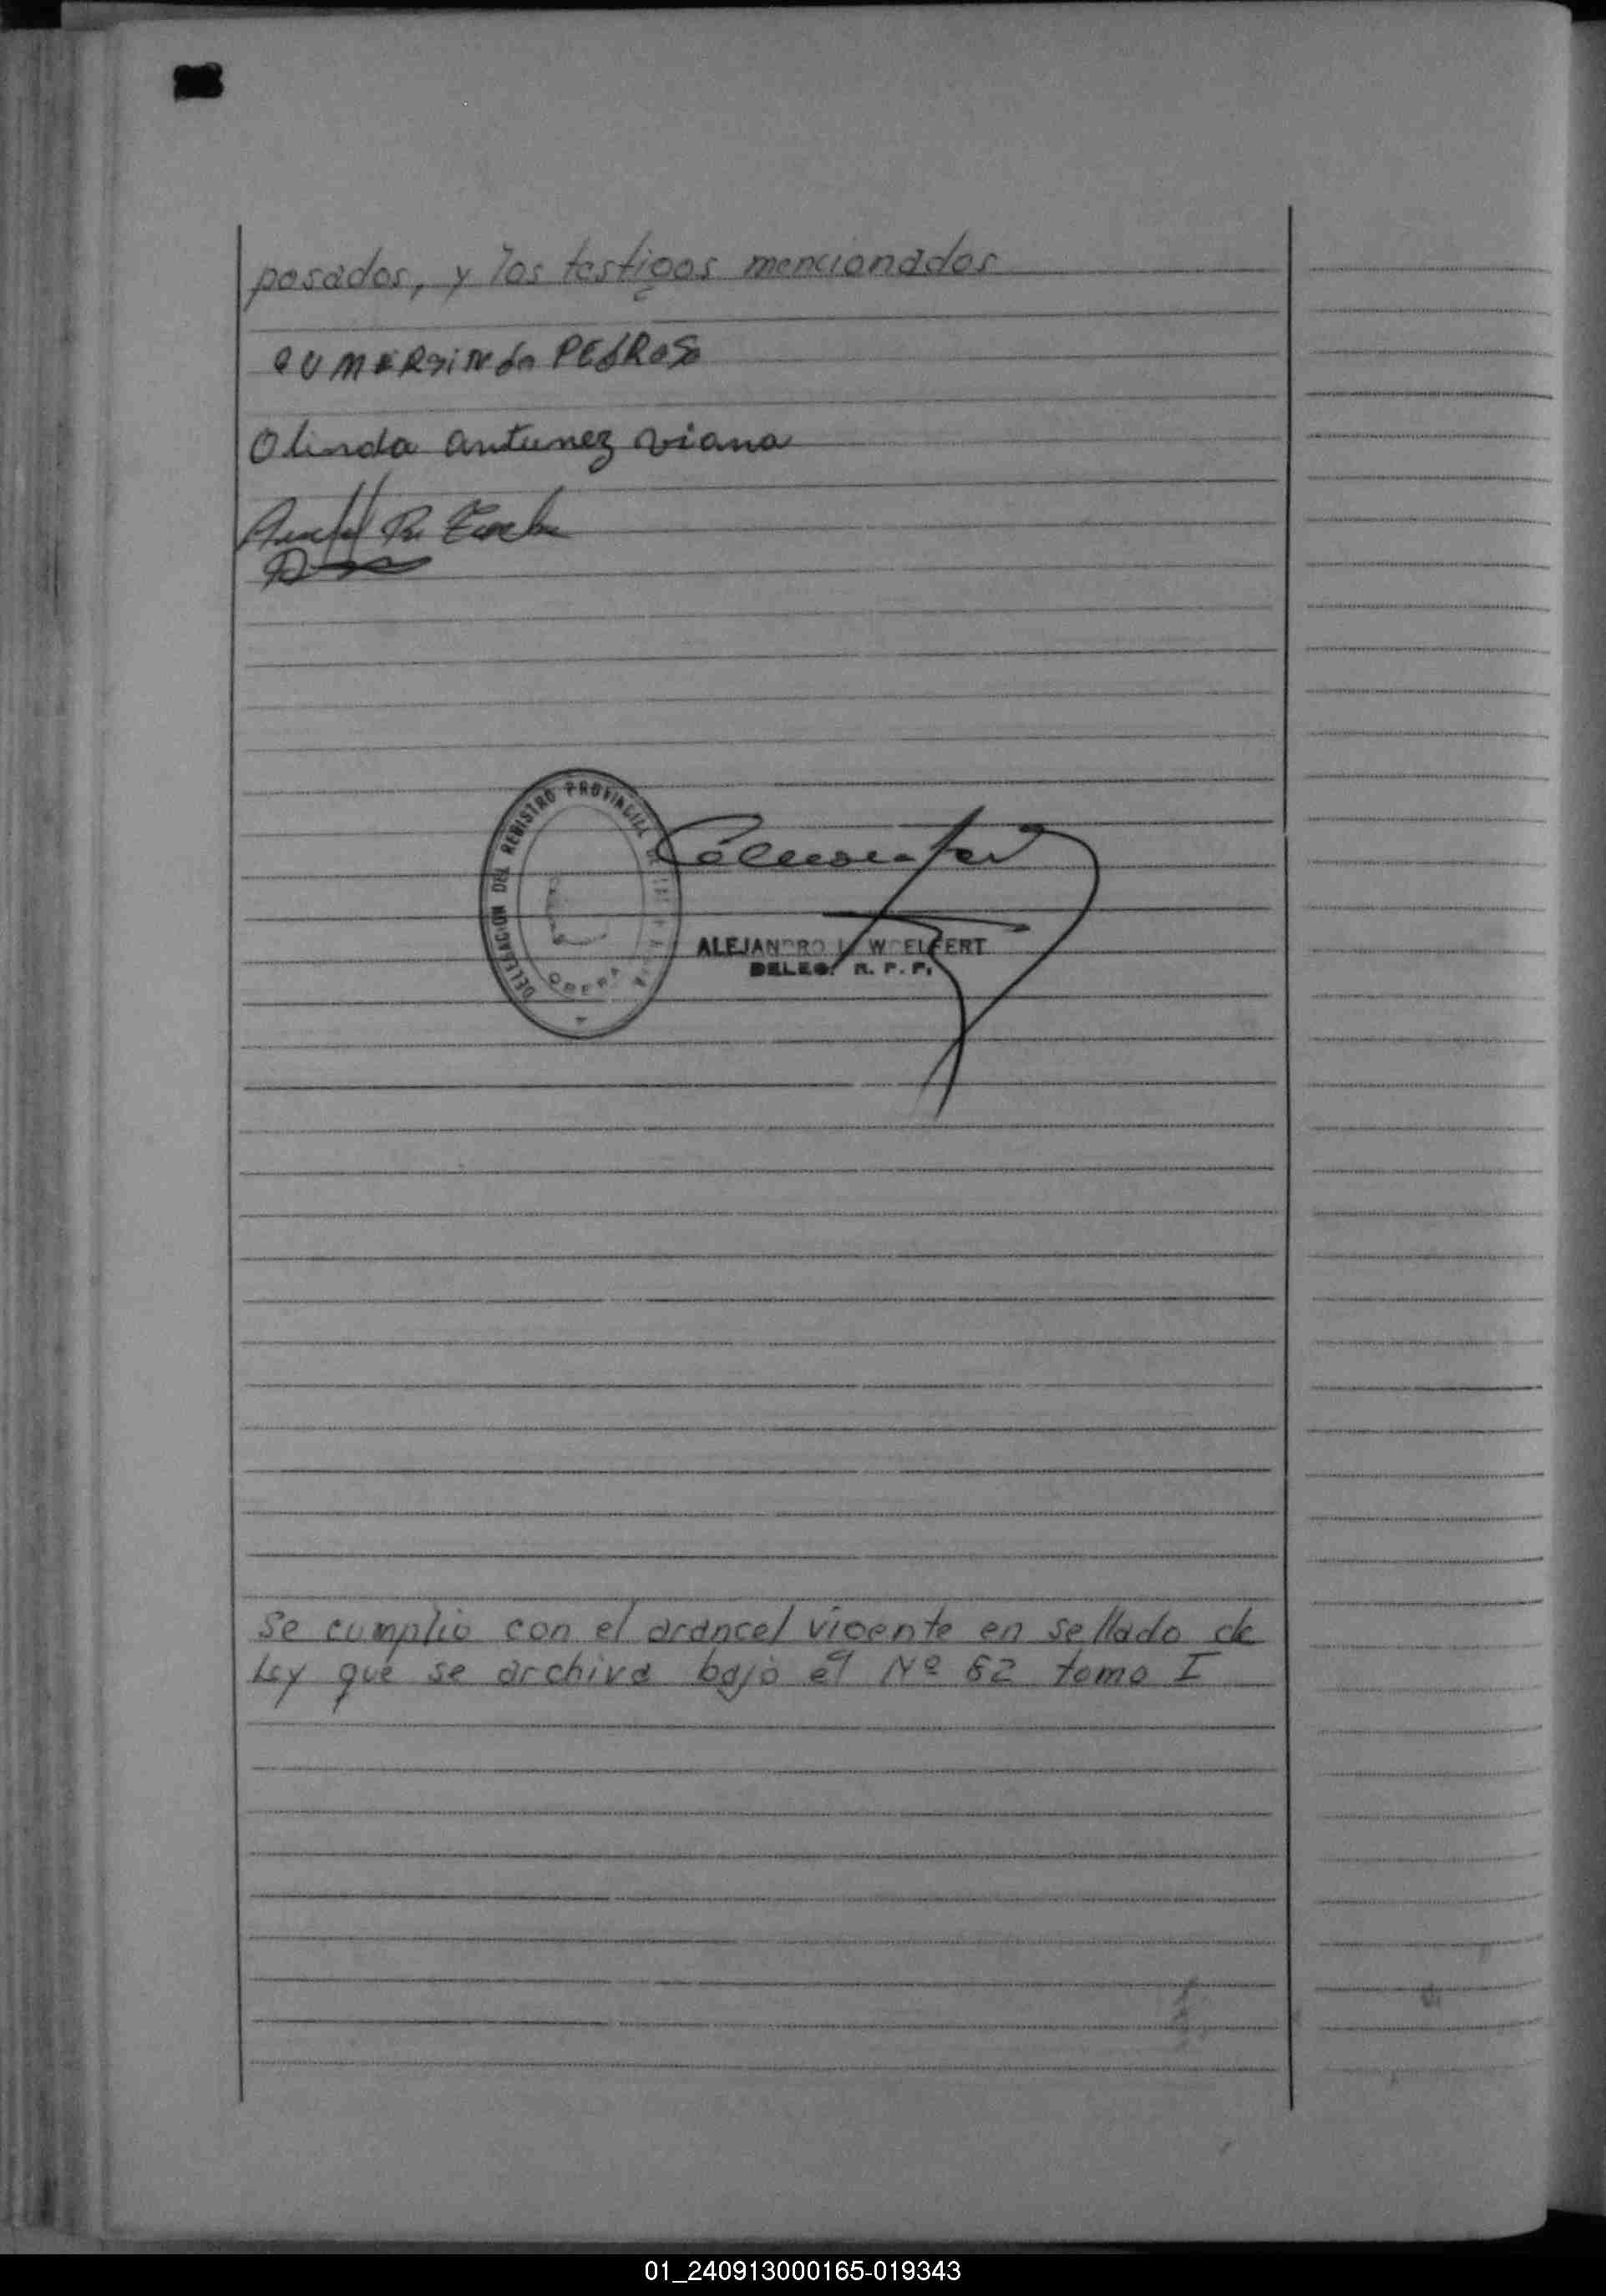 posados, y los testigos mencionados
GUMERSINdo PEdRoSo
Olinda antunez viana
DELEGACION DEL REGISTRO PROVINCIAL DE LAS
OBERA
ALEJANDRO L. WOELFERT
DELEG. R. P. P.
Se cumplio con el arancel vigente en sellado de
Ley que se archiva bajo el Nº 62 tomo I
01_240913000165-019343